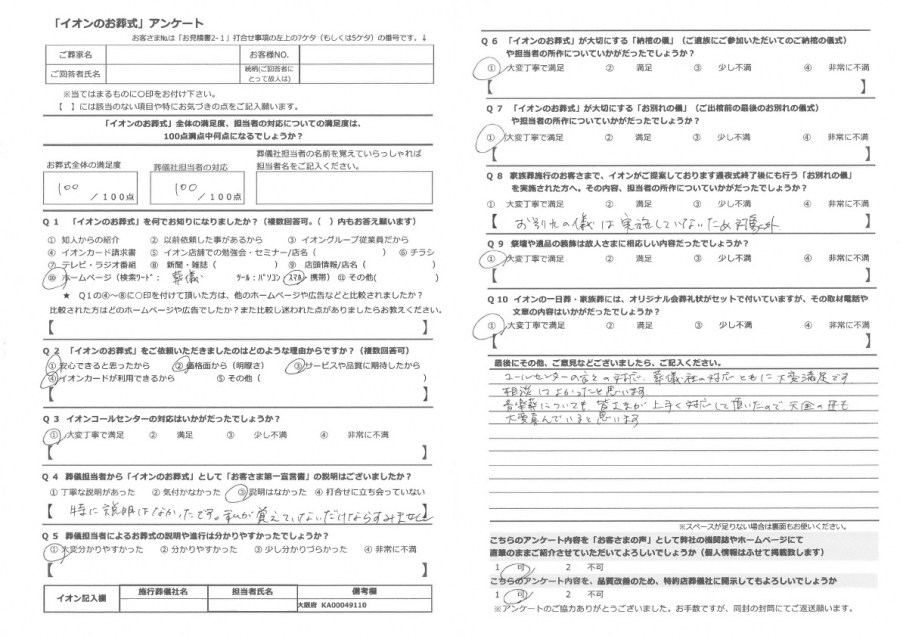 「イオンのお葬式」アンケート
お客さまNo.は「お見積書2-1」打合せ事項の左上の7ケタ（もしくは5ケタ）の番号です。↓
ご葬家名 お客様NO.
ご回答者氏名 続柄(ご回答者にとって故人は)
※当てはまるものに〇印をお付け下さい。
【 】には該当のない項目や特にお気づきの点をご記入願います。
「イオンのお葬式」全体の満足度、担当者の対応についての満足度は、
100点満点中何点になるでしょうか？
お葬式全体の満足度 葬儀社担当者の対応
葬儀社担当者の名前を覚えていらっしゃれば
担当者名をご記入ください。
100 /100点 100 /100点
Q 1 「イオンのお葬式」を何でお知りになりましたか？（複数回答可。( ) 内もお答え願います）
① 知人からの紹介 ② 以前依頼した事があるから ③ イオングループ従業員だから
④ イオンカード請求書 ⑤ イオン店舗での勉強会・セミナー/店名 ( ) ⑥ チラシ
⑦ テレビ・ラジオ番組 ⑧ 新聞・雑誌 ( ) ⑨ 店頭情報/店名 ( )
⑩ ホームページ（検索ﾜｰﾄﾞ： 葬儀 ﾂｰﾙ：ﾊﾟｿｺﾝ・ｽﾏﾎ・携帯） ⑪ その他( )
★ Q1の④～⑧に〇印を付けて頂いた方は、他のホームページや広告などと比較されましたか？
比較された方はどのホームページや広告でしたか？また比較し迷われた点がありましたらお教えください。
【 】
Q 2 「イオンのお葬式」をご依頼いただきましたのはどのような理由からですか？（複数回答可）
① 安心できると思ったから ② 価格面から（明瞭さ） ③ サービスや品質に期待したから
④ イオンカードが利用できるから ⑤ その他 (
【 】
Q 3 イオンコールセンターの対応はいかがだったでしょうか？
① 大変丁寧で満足 ② 満足 ③ 少し不満 ④ 非常に不満
【 】
Q 4 葬儀担当者から「イオンのお葬式」として「お客さま第一宣言書」の説明はございましたか？
① 丁寧な説明があった ② 気付かなかった ③ 説明はなかった ④ 打合せに立ち会っていない
【 特に説明はなかったです。私が覚えていないだけならすみません 】
Q 5 葬儀担当者によるお葬式の説明や進行は分かりやすかったでしょうか？
① 大変分かりやすかった ② 分かりやすかった ③ 少し分かりづらかった ④ 非常に不満
【 】
イオン記入欄 施行葬儀社名 担当者氏名 備考欄
大阪府 KA00049110
Q 6 「イオンのお葬式」が大切にする「納棺の儀」（ご遺族にご参加いただいてのご納棺の儀式）
や担当者の所作についていかがだったでしょうか？
① 大変丁寧で満足 ② 満足 ③ 少し不満 ④ 非常に不満
【 】
Q 7 「イオンのお葬式」が大切にする「お別れの儀」（ご出棺前の最後のお別れの儀式）
や担当者の所作についていかがだったでしょうか？
① 大変丁寧で満足 ② 満足 ③ 少し不満 ④ 非常に不満
【 】
Q 8 家族葬施行のお客さまで、イオンがご提案しております通夜式終了後にも行う「お別れの儀」
を実施された方へ。その内容、担当者の所作についていかがだったでしょうか？
① 大変丁寧で満足 ② 満足 ③ 少し不満 ④ 非常に不満
【 お別れの儀は実施していないため対象外 】
Q 9 祭壇や遺品の装飾は故人さまに相応しい内容だったでしょうか？
① 大変丁寧で満足 ② 満足 ③ 少し不満 ④ 非常に不満
【 】
Q 10 イオンの一日葬・家族葬には、オリジナル会葬礼状がセットで付いていますが、その取材電話や
文章の内容はいかがだったでしょうか？
① 大変丁寧で満足 ② 満足 ③ 少し不満 ④ 非常に不満
【 】
最後にその他、ご意見などございましたら、ご記入ください。
コールセンターの方々の対応、葬儀社の対応ともに大変満足です
相談してよかったと思います。
音楽葬についても、皆さまが上手く対応して頂いたので天国の母も
大変喜んでいると思います
※スペースが足りない場合は裏面もお使いください。
こちらのアンケート内容を「お客さまの声」として弊社の機関誌やホームページにて
直筆のままご紹介させていただいてよろしいでしょうか（個人情報はふせて掲載致します）
1 可 2 不可
こちらのアンケート内容を、品質改善のため、特約店葬儀社に開示してもよろしいでしょうか
1 可 2 不可
※アンケートのご協力ありがとうございました。お手数ですが、同封の封筒にてご返送願います。